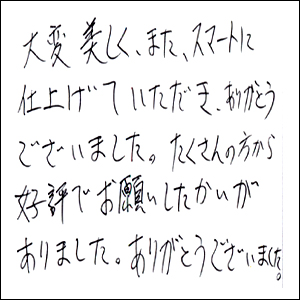 大変美しく、また、スマートに
仕上げていただき、ありがとう
ございました。たくさんの方から
好評でお願いしたかいが
ありました。ありがとうございました。